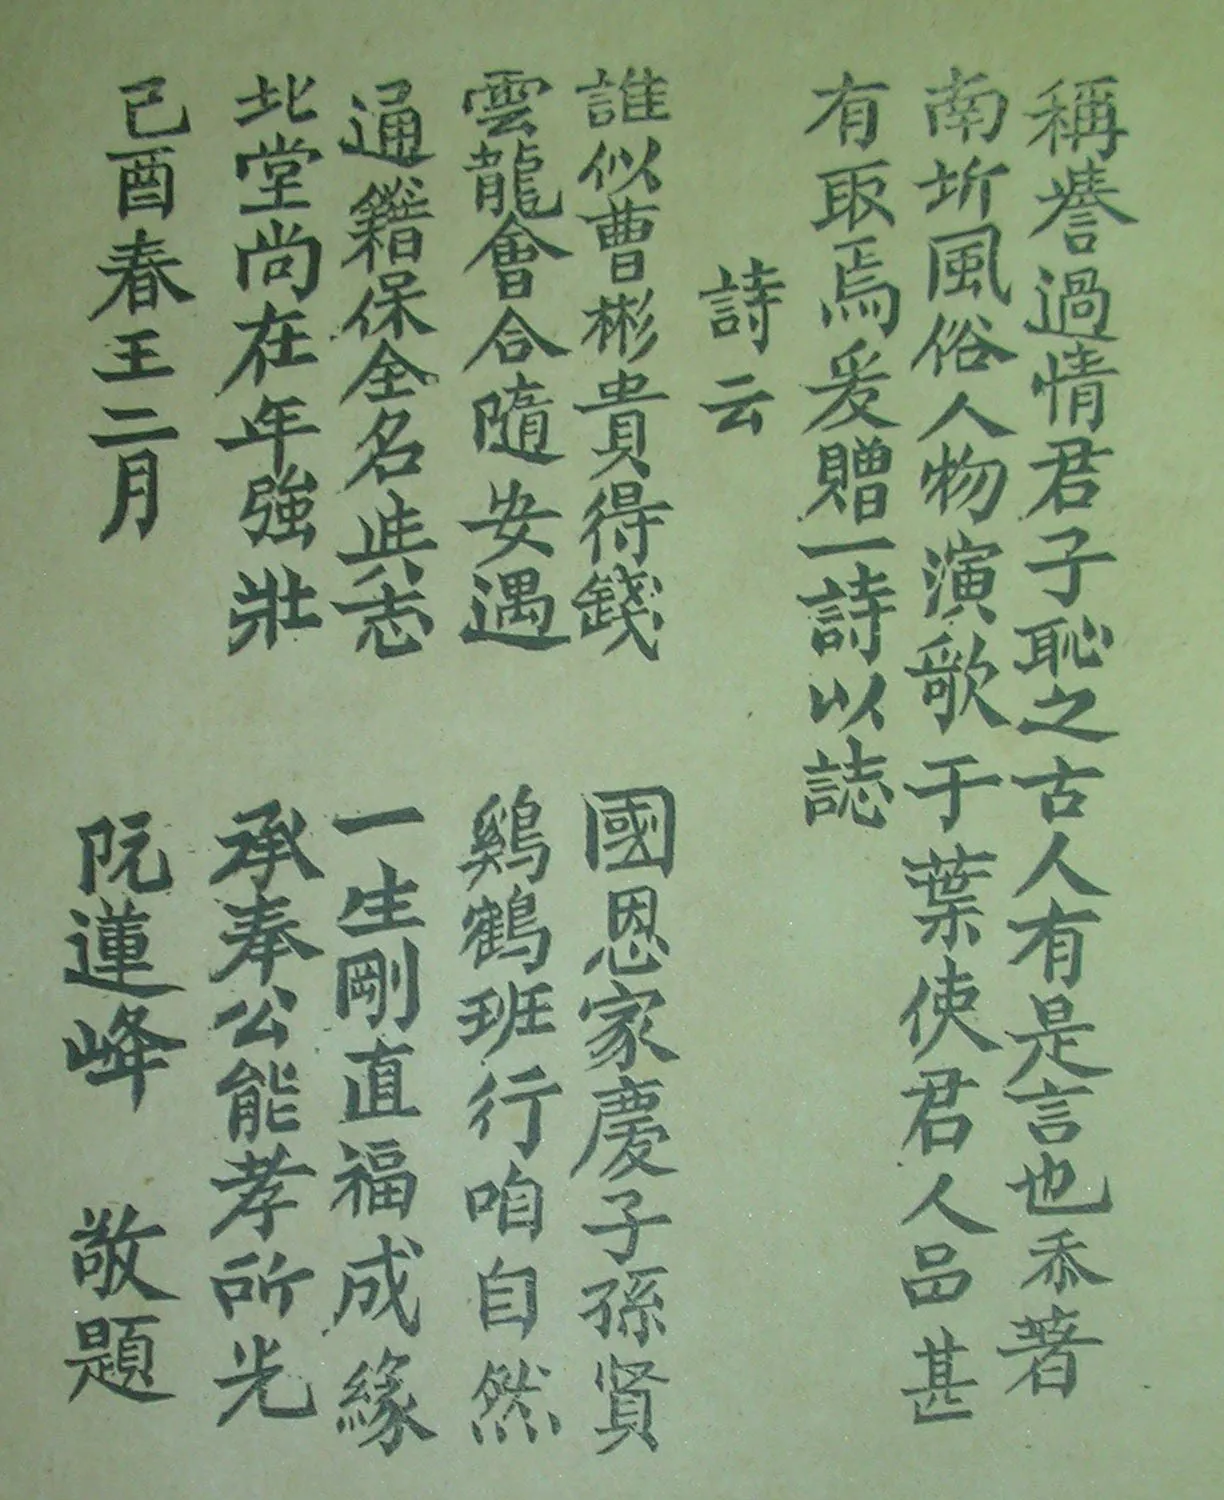 稱譽過情君子恥之古人有是言也忝著
南圻風俗人物演歌于葉使君人品甚
有取焉爰贈一詩以誌
詩云
誰似曹彬貴得錢 國恩家慶子孫賢
雲龍會合隨安遇 鷄鶴班行咱自然
通籍保全名與志 一生剛直福成緣
北堂尚在年強壯 承奉公能孝所光
己酉春王二月 阮蓮峰 敬題